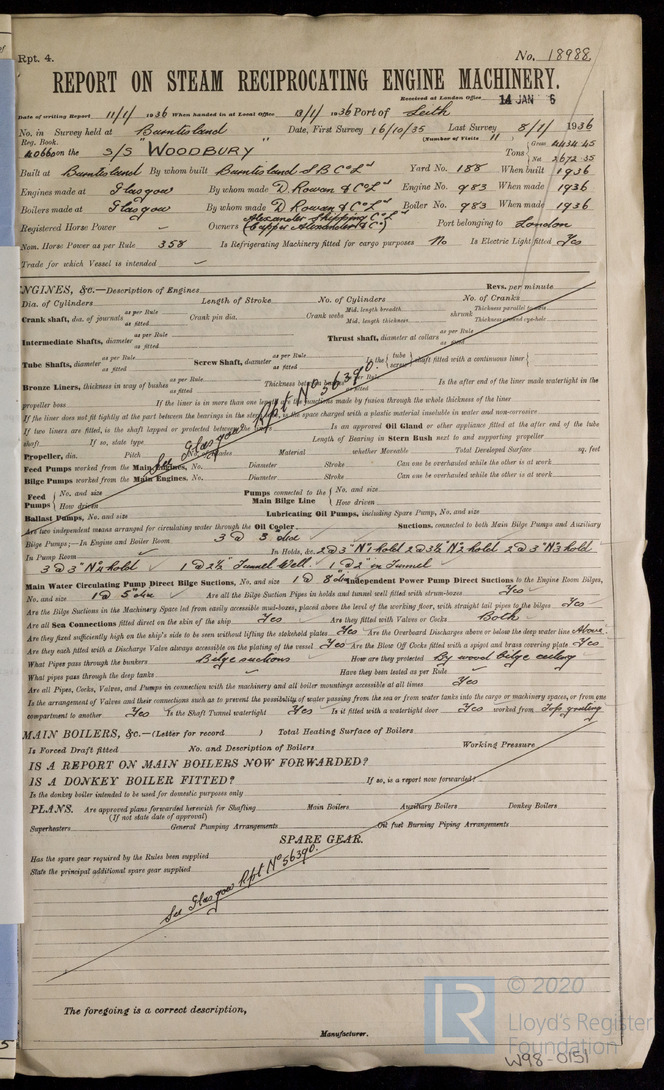 Rpt. 4. No. 18988
REPORT ON STEAM RECIPROCATING ENGINE MACHINERY.
Received at London Office 14 JAN 6
Date of writing Report 11/1/1936 When handed in at Local Office 13/1/1936 Port of Leith
No. in Survey held at Burntisland Date, First Survey 16/10/35 Last Survey 8/1/1936
Reg. Book. (Number of Visits " )
40660 on the S/S "WOODBURY" Tons Gross 4434.45
Net 2672.35
Built at Burntisland By whom built Burntisland S B Co Ld Yard No. 188 When built 1936
Engines made at Glasgow By whom made D. Rowan & Co Ld Engine No. 983 When made 1936
Boilers made at Glasgow By whom made D. Rowan & Co Ld Boiler No. 983 When made 1936
Registered Horse Power - Owners Alexander Shipping Co Ld (Capper Alexander & Co) Port belonging to London
Nom. Horse Power as per Rule 358 Is Refrigerating Machinery fitted for cargo purposes No Is Electric Light fitted Yes
Trade for which Vessel is intended ✓
ENGINES, &c.—Description of Engines Revs. per minute
Dia. of Cylinders Length of Stroke No. of Cylinders No. of Cranks
Crank shaft, dia. of journals as per Rule as fitted Crank pin dia. Crank webs Mid. length breadth Mid. length thickness shrunk Thickness parallel to axis Thickness around eye-hole
Intermediate Shafts, diameter as per Rule as fitted Thrust shaft, diameter at collars as per Rule as fitted
Tube Shafts, diameter as per Rule as fitted Screw Shaft, diameter as per Rule as fitted Is the { tube screw } shaft fitted with a continuous liner {
Bronze Liners, thickness in way of bushes as per Rule as fitted Thickness between bushes as per Rule as fitted Is the after end of the liner made watertight in the
propeller boss If the liner is in more than one length are the junctions made by fusion through the whole length of the liner
If the liner does not fit tightly at the part between the bearings in the stern tube, is the space charged with a plastic material insoluble in water and non-corrosive
If two liners are fitted, is the shaft lapped or protected between the liners Is an approved Oil Gland or other appliance fitted at the after end of the tube
shaft If so, state type Length of Bearing in Stern Bush next to and supporting propeller
Propeller, dia. Pitch No. of Blades Material whether Moveable Total Developed Surface sq. feet
Feed Pumps worked from the Main Engines, No. Diameter Stroke Can one be overhauled while the other is at work
Bilge Pumps worked from the Main Engines, No. Diameter Stroke Can one be overhauled while the other is at work
Feed Pumps { No. and size How driven Pumps connected to the Main Bilge Line { No. and size How driven
Ballast Pumps, No. and size Lubricating Oil Pumps, including Spare Pump, No. and size
See Glasgow Rpt No 56390.
Are two independent means arranged for circulating water through the Oil Cooler Suctions, connected to both Main Bilge Pumps and Auxiliary
Bilge Pumps;—In Engine and Boiler Room 3 @ 3" dia
In Pump Room ✓ In Holds, &c. 2 @ 3" No 1 hold 2 @ 3½" No 2 hold 2 @ 3" No 3 hold
3 @ 3" No 4 hold 1 @ 2½" Tunnel Well. 1 @ 2" in Tunnel
Main Water Circulating Pump Direct Bilge Suctions, No. and size 1 @ 8" dia Independent Power Pump Direct Suctions to the Engine Room Bilges,
No. and size 1 @ 5" dia Are all the Bilge Suction Pipes in holds and tunnel well fitted with strum-boxes Yes
Are the Bilge Suctions in the Machinery Space led from easily accessible mud-boxes, placed above the level of the working floor, with straight tail pipes to the bilges Yes
Are all Sea Connections fitted direct on the skin of the ship Yes Are they fitted with Valves or Cocks Both
Are they fixed sufficiently high on the ship's side to be seen without lifting the stokehold plates Yes Are the Overboard Discharges above or below the deep water line Above.
Are they each fitted with a Discharge Valve always accessible on the plating of the vessel Yes Are the Blow Off Cocks fitted with a spigot and brass covering plate Yes
What Pipes pass through the bunkers Bilge suctions How are they protected By wood bilge ceiling
What pipes pass through the deep tanks ✓ Have they been tested as per Rule ✓
Are all Pipes, Cocks, Valves, and Pumps in connection with the machinery and all boiler mountings accessible at all times Yes
Is the arrangement of Valves and their connections such as to prevent the possibility of water passing from the sea or from water tanks into the cargo or machinery spaces, or from one
compartment to another Yes Is the Shaft Tunnel watertight Yes Is it fitted with a watertight door Yes worked from Top grating
MAIN BOILERS, &c.—(Letter for record ) Total Heating Surface of Boilers
Is Forced Draft fitted No. and Description of Boilers Working Pressure
IS A REPORT ON MAIN BOILERS NOW FORWARDED?
IS A DONKEY BOILER FITTED? If so, is a report now forwarded?
Is the donkey boiler intended to be used for domestic purposes only
PLANS. Are approved plans forwarded herewith for Shafting Main Boilers Auxiliary Boilers Donkey Boilers
(If not state date of approval)
Superheaters General Pumping Arrangements Oil fuel Burning Piping Arrangements
SPARE GEAR.
Has the spare gear required by the Rules been supplied
State the principal additional spare gear supplied
See Glasgow Rpt No 56390.
The foregoing is a correct description,
Manufacturer.
LR © 2020
Lloyd's Register
Foundation
W98-0151